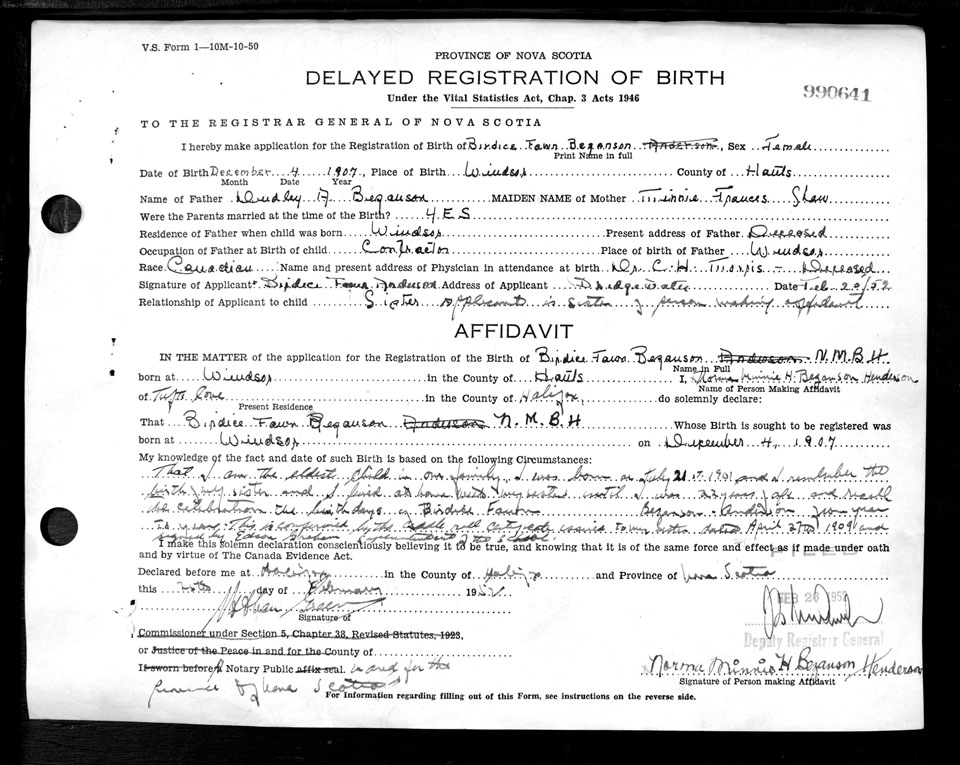 V.S. Form 1—10M-10-50
PROVINCE OF NOVA SCOTIA
DELAYED REGISTRATION OF BIRTH
Under the Vital Statistics Act, Chap. 3 Acts 1946
990641
TO THE REGISTRAR GENERAL OF NOVA SCOTIA
I hereby make application for the Registration of Birth of Birdice Fawn Bezanson Anderson, Sex Female
Print Name in full
Date of Birth December 4 1907, Place of Birth Windsor County of Hants
Month Date Year
Name of Father Dudley A Bezanson MAIDEN NAME of Mother Minnie Frances Shaw
Were the Parents married at the time of the Birth? YES
Residence of Father when child was born Windsor Present address of Father Deceased
Occupation of Father at Birth of child Contractor Place of birth of Father Windsor
Race Canadian Name and present address of Physician in attendance at birth Dr. C. H. Morris - Deceased
Signature of Applicant Birdice Fawn Anderson Address of Applicant Bridgewater Date Feb 20/52
Relationship of Applicant to child Sister Applicant is sister of person making affidavit
AFFIDAVIT
IN THE MATTER of the application for the Registration of the Birth of Birdice Fawn Bezanson Anderson N.M.B.H
Name in Full
born at Windsor in the County of Hants I, Norma Minnie H. Bezanson Henderson
Name of Person Making Affidavit
of Tufts Cove in the County of Halifax, do solemnly declare:
Present Residence
That Birdice Fawn Bezanson Anderson N.M.B.H Whose Birth is sought to be registered was
born at Windsor on December 4, 1907
My knowledge of the fact and date of such Birth is based on the following Circumstances:
That I am the eldest child in our family, I was born on July 21st 1901 and I remember the
birth of my sister and I lived at home with my sister until I was 22 years of age and recall
the celebration of the birthdays of Birdice Fawn Bezanson Anderson from year
to year. This is confirmed by the Cradle roll certificate issued to my sister dated April 27th 1909 and
signed by Edson Graham Superintendent of the School.
I make this solemn declaration conscientiously believing it to be true, and knowing that it is of the same force and effect as if made under oath
and by virtue of The Canada Evidence Act.
FILED
Declared before me at Halifax in the County of Halifax and Province of Nova Scotia
this 20th day of February 1952
FEB 26 1952
Signature of
Deputy Registrar General
Commissioner under Section 5, Chapter 38, Revised Statutes, 1923,
or Justice of the Peace in and for the County of
If sworn before A Notary Public affix seal. in and for the
province of Nova Scotia
Norma Minnie H Bezanson Henderson
Signature of Person making Affidavit
For Information regarding filling out of this Form, see instructions on the reverse side.